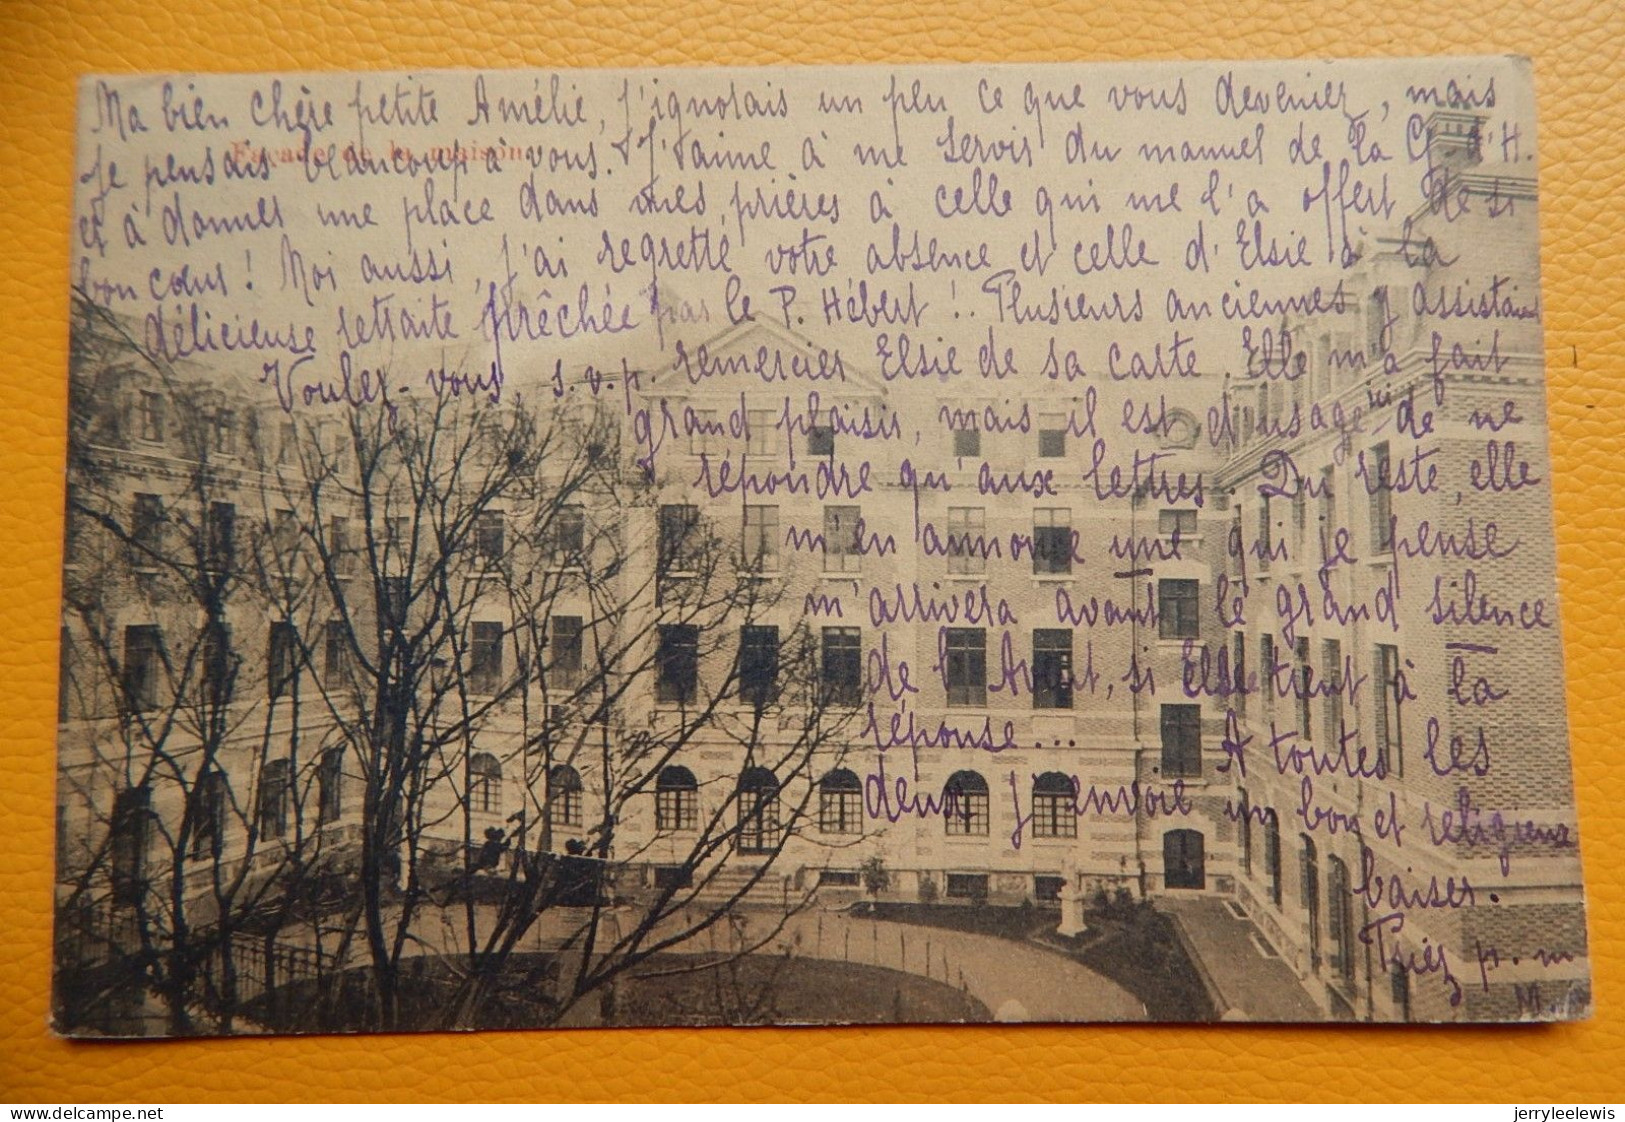 Ma bien chère petite Amélie, j'ignorais un peu ce que vous deveniez, mais
Façade de la maison
je pensais beaucoup à vous. J'aime à me servir du manuel de la G. d'H.
et à donner une place dans mes prières à celle qui me l'a offert de si
bon cœur! Moi aussi, j'ai regretté votre absence et celle d'Elsie à la
délicieuse retraite prêchée par le P. Hébert!. Plusieurs anciennes y assistaient
Voulez-vous, s.v.p. remercier Elsie de sa carte. Elle m'a fait
grand plaisir, mais il est d'usage ici de ne
répondre qu'aux lettres. Du reste, elle
m'en annonce une qui je pense
m'arrivera avant le grand silence
de l'Avent, si Elsie tient à la
réponse... A toutes les
deux j'envoie un bon et religieux
baiser.
Priez p. m
M.
delcampe.net
jerryleelewis